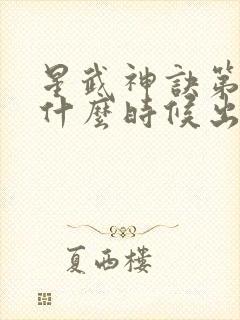 星武神訣第
什麼時候出
夏西樓